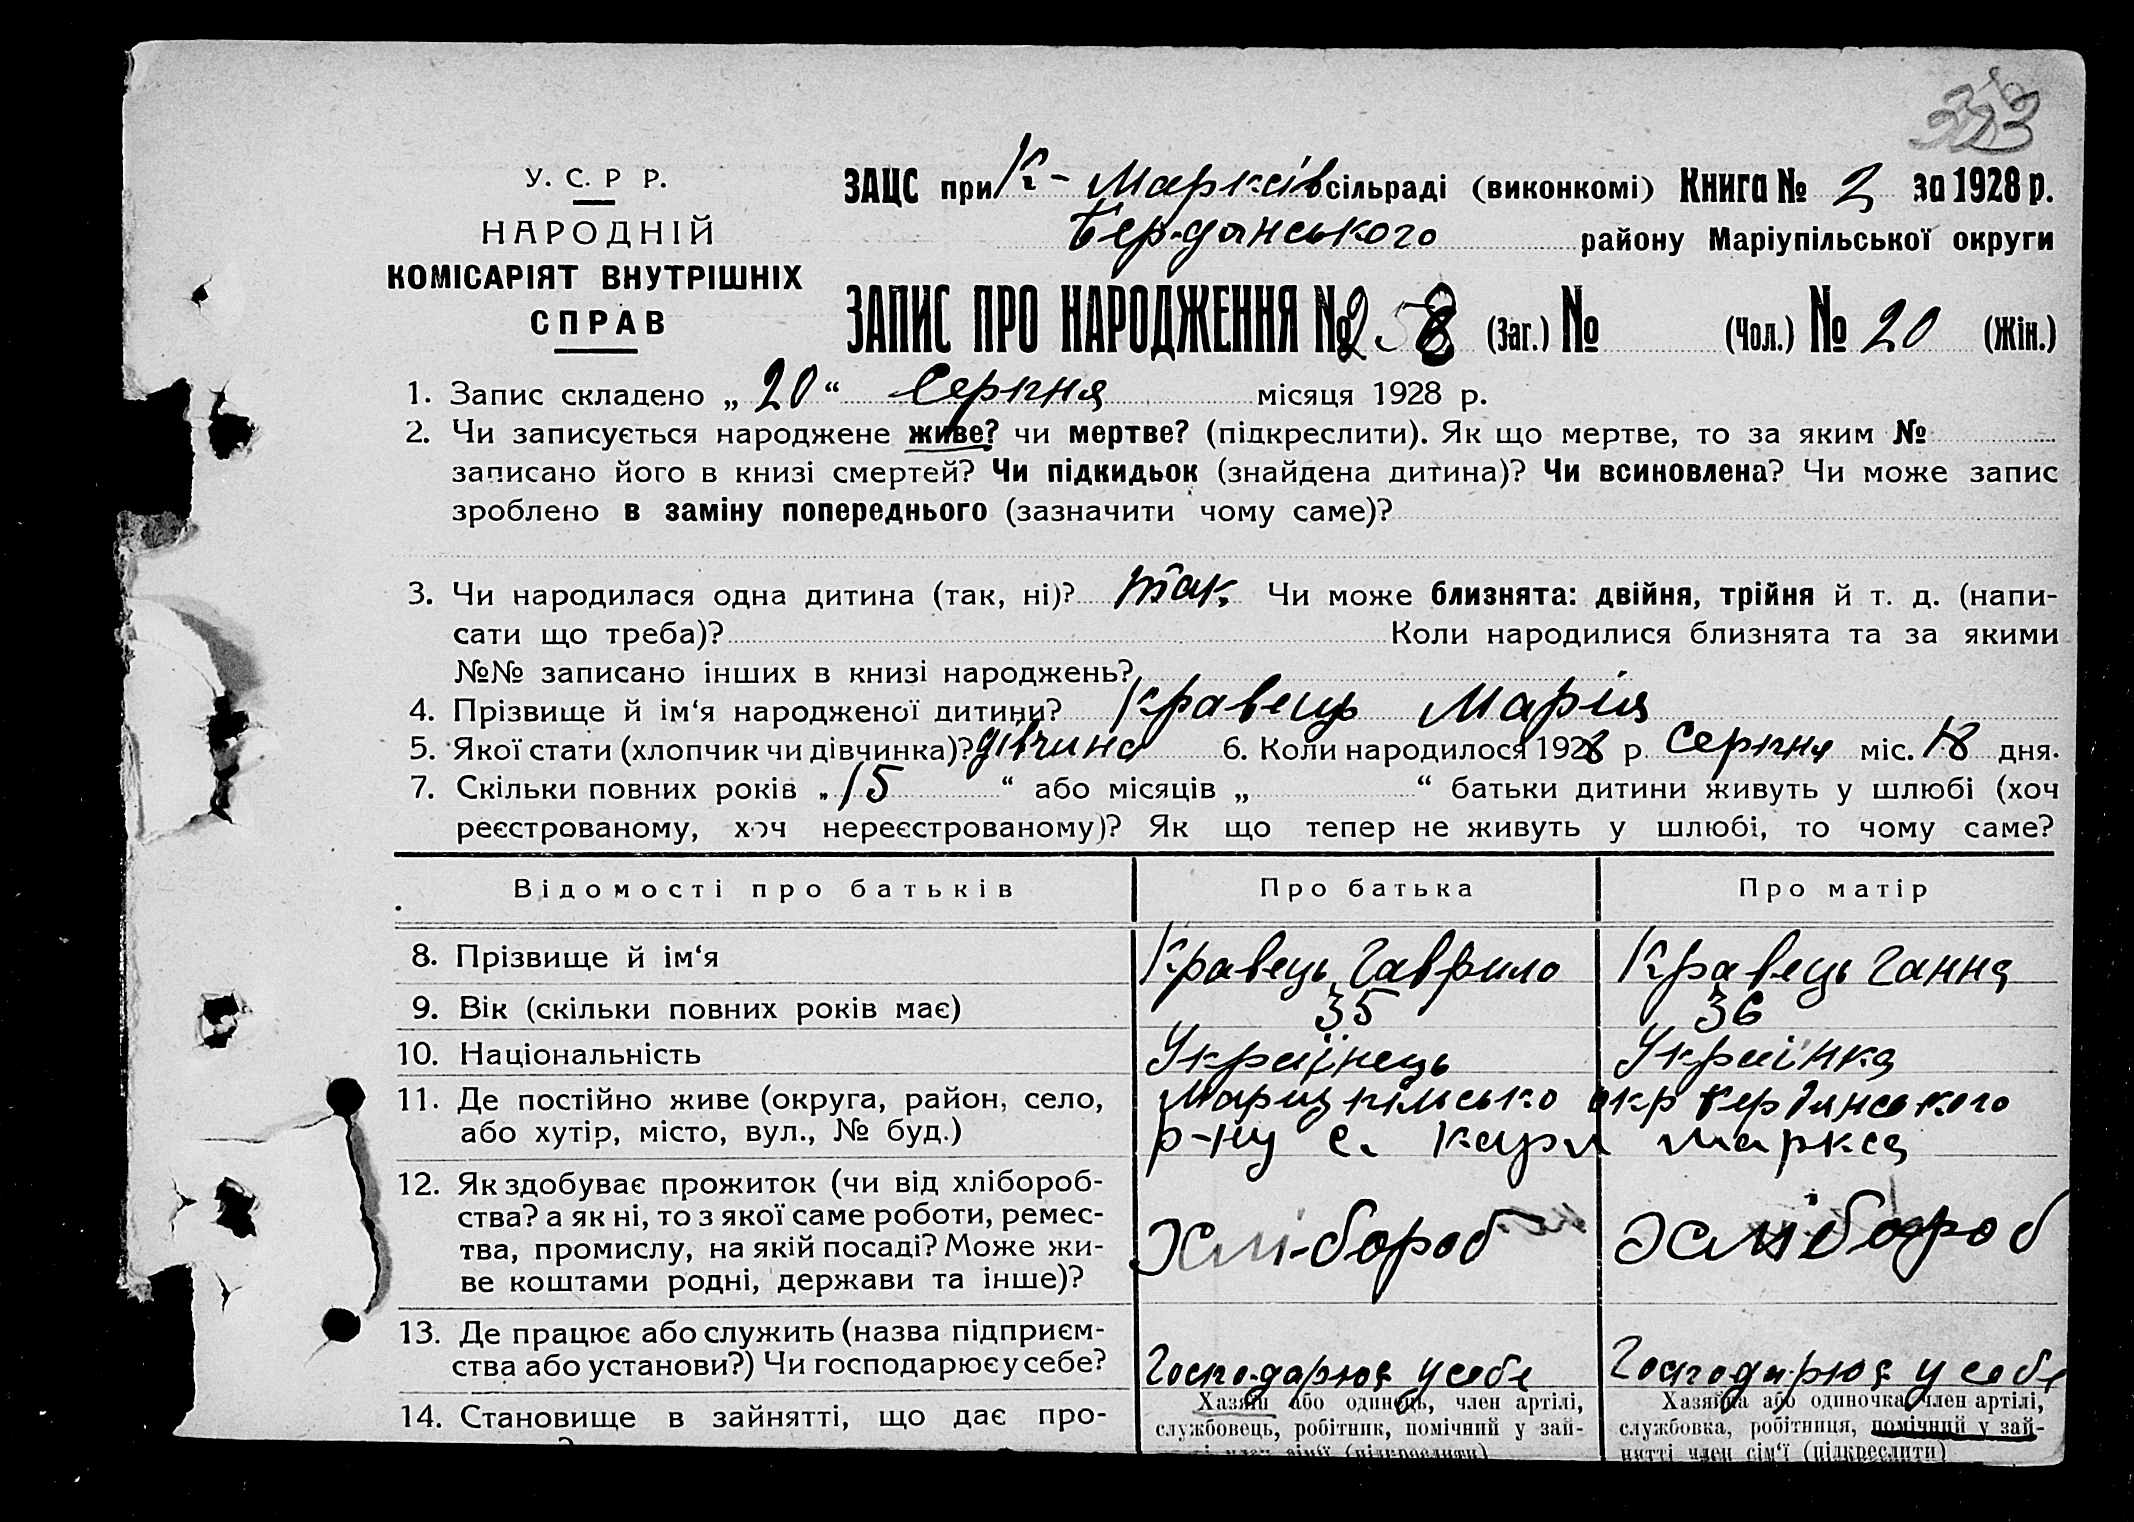 333
У. С. Р Р.
НАРОДНІЙ
КОМІСАРІЯТ ВНУТРІШНІХ
СПРАВ
ЗАЦС при К-Марксів сільраді (виконкомі) Книга № 2 за 1928 р.
Бердянського району Маріупільської округи
ЗАПИС ПРО НАРОДЖЕННЯ № 258 (Заг.) № (Чол.) № 20 (Жін.)
1. Запис складено „ 20 “ Серпня місяця 1928 р.
2. Чи записується народжене живе? чи мертве? (підкреслити). Як що мертве, то за яким №
записано його в книзі смертей? Чи підкидьок (знайдена дитина)? Чи всиновлена? Чи може запис
зроблено в заміну попереднього (зазначити чому саме)?
3. Чи народилася одна дитина (так, ні)? так. Чи може близнята: двійня, трійня й т. д. (напи-
сати що треба)? Коли народилися близнята та за якими
№№ записано інших в книзі народжень?
4. Прізвище й ім‘я народженої дитини? Кравець Марія
5. Якої стати (хлопчик чи дівчинка)? дівчина 6. Коли народилося 1928 р. Серпня міс. 18 дня.
7. Скільки повних років „ 15 “ або місяців „ “ батьки дитини живуть у шлюбі (хоч
реєстрованому, хоч нереєстрованому)? Як що тепер не живуть у шлюбі, то чому саме?
Відомості про батьків Про батька Про матір
8. Прізвище й ім‘я Кравець Гаврило Кравець Ганна
9. Вік (скільки повних років має) 35 36
10. Національність Українець Українка
11. Де постійно живе (округа, район, село, Марцупільсько окр Бердянського
або хутір, місто, вул., № буд.) р-ну с. Карл Маркса
12. Як здобуває прожиток (чи від хлібороб-
ства? а як ні, то з якої саме роботи, ремес-
тва, промислу, на якій посаді? Може жи-
ве коштами родні, держави та інше)?
Хлі-бороб Хлібороб
13. Де працює або служить (назва підприєм-
ства або установи?) Чи господарює у себе? Господарює у себе Господарює у себе
14. Становище в зайнятті, що дає про-
Хазяїн або одинець, член артілі,
службовець, робітник, помічний у зай-
нятті член сім‘ї (підкреслити)
Хазяйка або одиночка член артілі,
службовка, робітниця, помічний у зай-
нятті член сім‘ї (підкреслити)